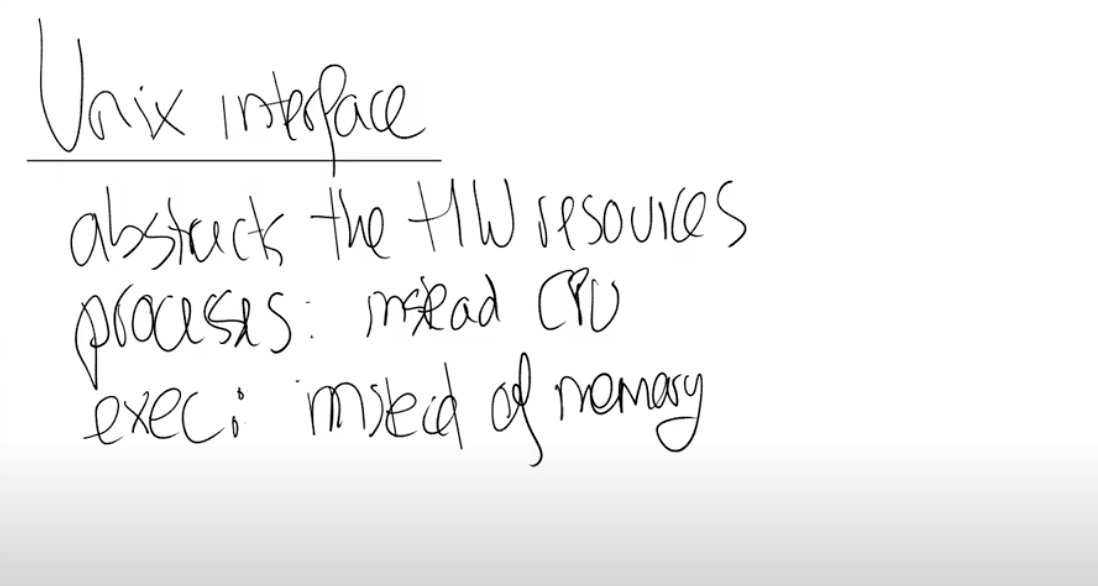 Unix interface
abstracts the HW resources
processes: instead CPU
exec: instead of memory